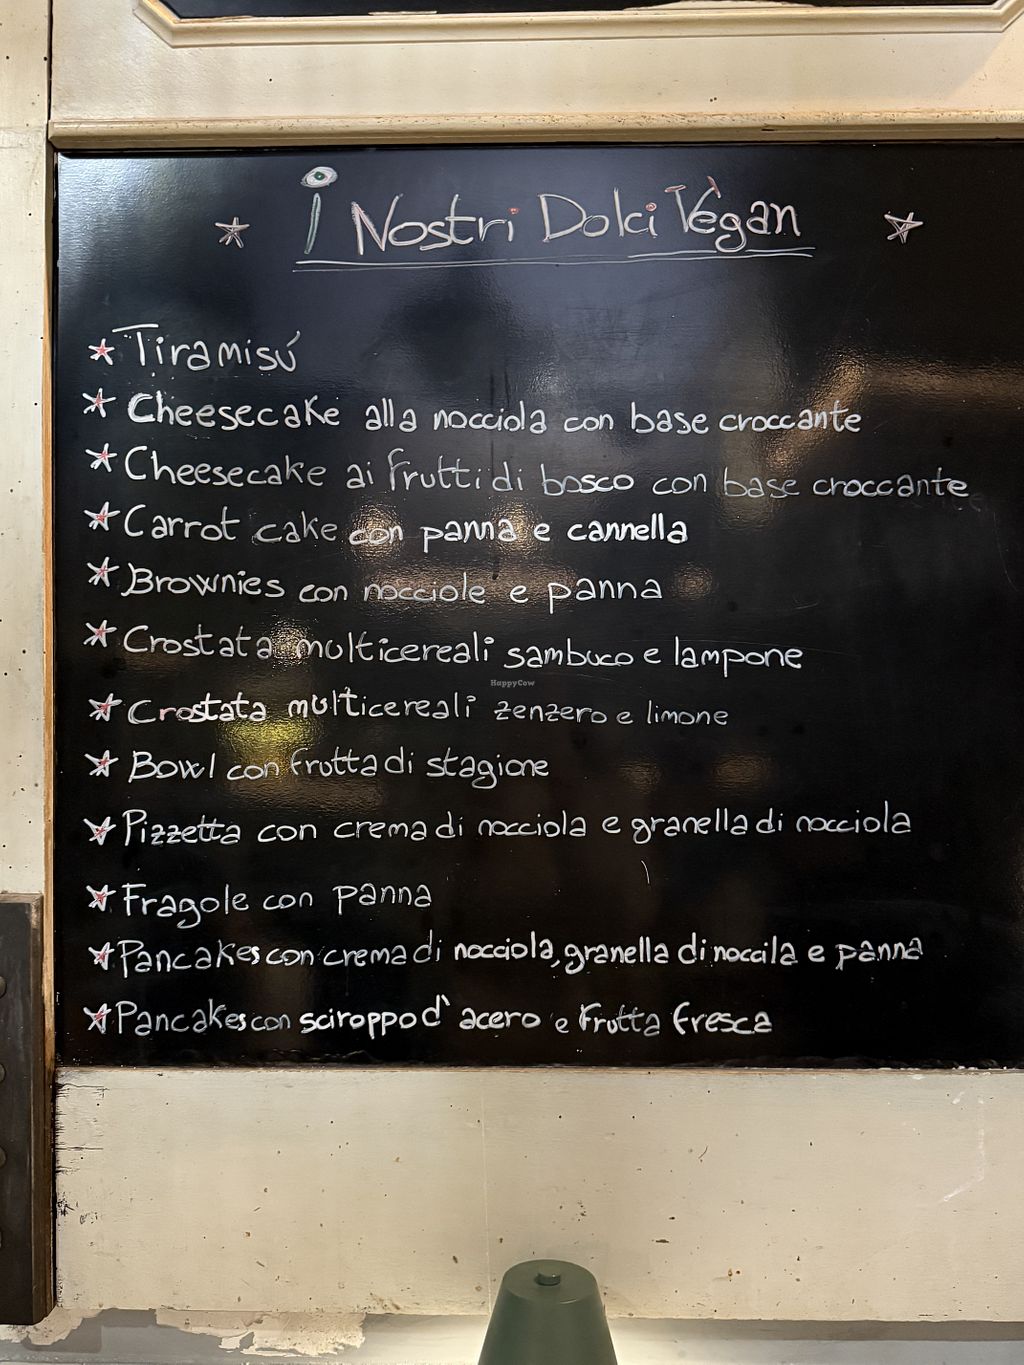 i Nostri Dolci Vègan
Tiramisú
Cheesecake alla nocciola con base croccante
Cheesecake ai frutti di bosco con base croccante
Carrot cake con panna e cannella
Brownies con nocciole e panna
Crostata multicereali sambuco e lampone
HappyCow
Crostata multicereali zenzero e limone
Bowl con frutta di stagione
Pizzetta con crema di nocciola e granella di nocciola
Fragole con panna
Pancakes con crema di nocciola, granella di noccila e panna
Pancakes con sciroppo d'acero e frutta fresca